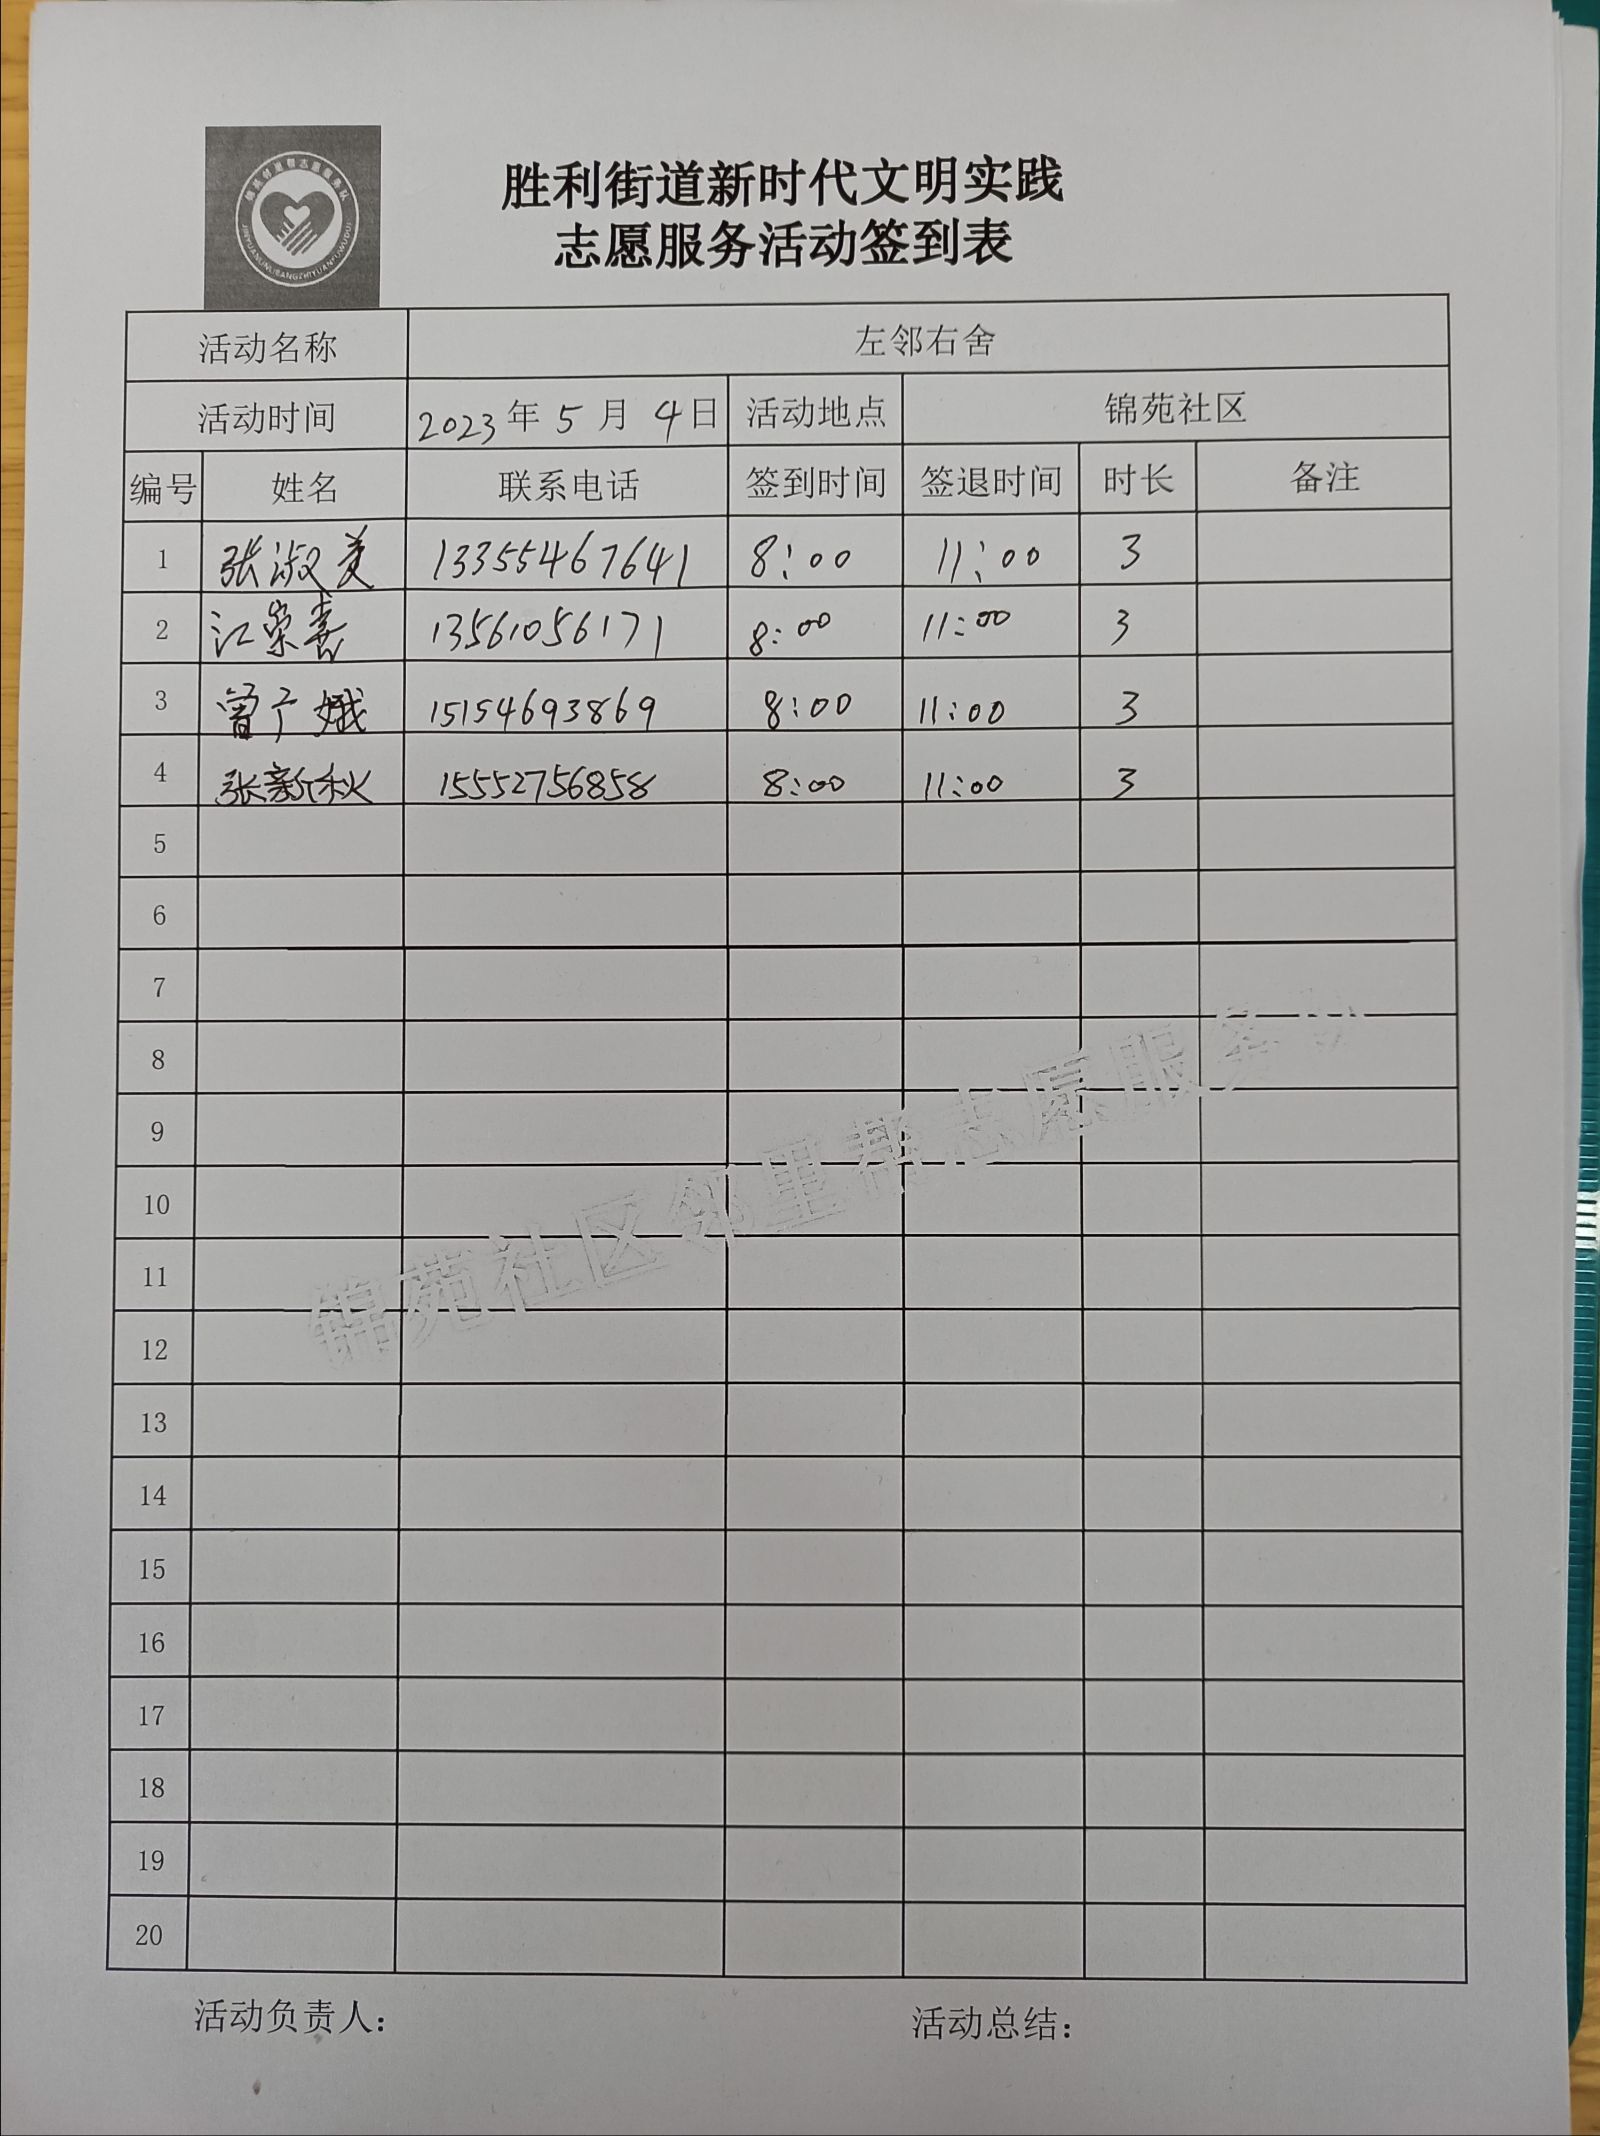 胜利街道新时代文明实践
志愿服务活动签到表
活动名称 左邻右舍
活动时间 2023年5月4日 活动地点 锦苑社区
编号 姓名 联系电话 签到时间 签退时间 时长 备注
1 张淑美 13355467641 8:00 11:00 3
2 江荣喜 13561056171 8:00 11:00 3
3 曾广娥 15154693869 8:00 11:00 3
4 张新秋 15552756858 8:00 11:00 3
5
6
7
8
9
10
11
12
13
14
15
16
17
18
19
20
锦苑社区邻里帮志愿服务队
活动负责人： 活动总结：